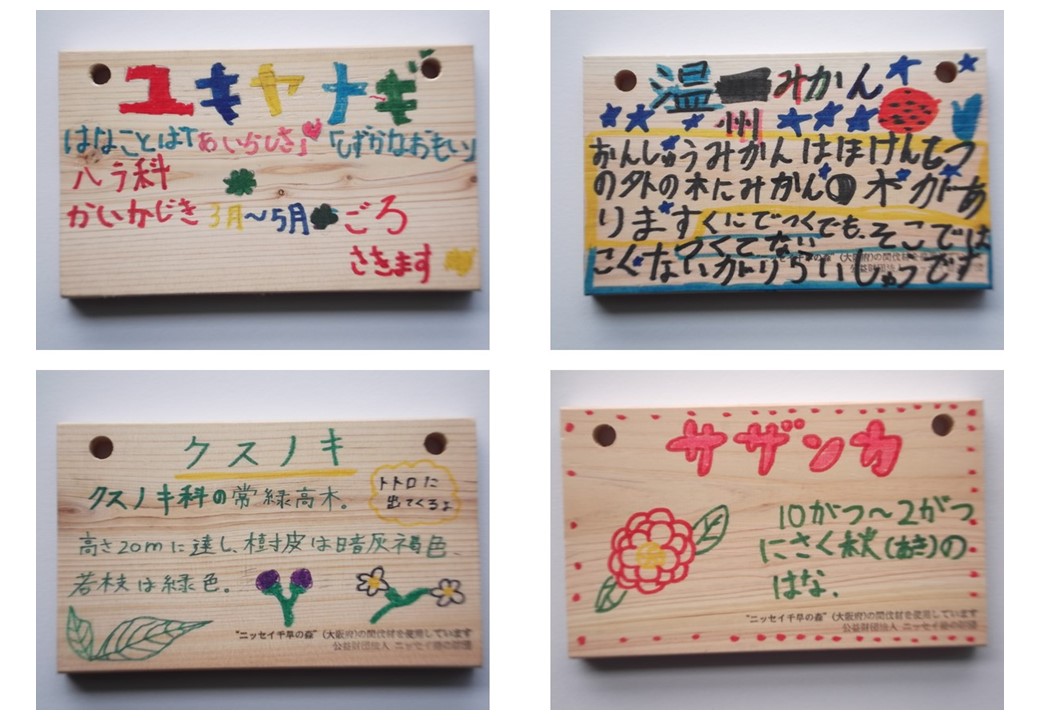 ユキヤナギ
はなことば「あいらしさ」「しずかなおもい」
バラ科
かいかじき3月～5月ごろ
さきます
温 みかん
州
おんしゅうみかんはほけんもつ
の外の木たみかんの木があ
ります くにでつくでも、そこでは
つくてない
こくないがりらいしゅつです
"ニッセイ千早の森" (大阪府)の間伐材を使用しています
公益財団法人 ニッセイ緑の財団
クスノキ
クスノキ科の常緑高木。
トトロに
出てくるよ
高さ20mに達し、樹皮は暗灰褐色、
若枝は緑色。
"ニッセイ千早の森" (大阪府)の間伐材を使用しています
公益財団法人 ニッセイ緑の財団
サザンカ
10がつ～2がつ
にさく秋(あき)の
はな、
"ニッセイ千早の森" (大阪府)の間伐材を使用しています
公益財団法人 ニッセイ緑の財団